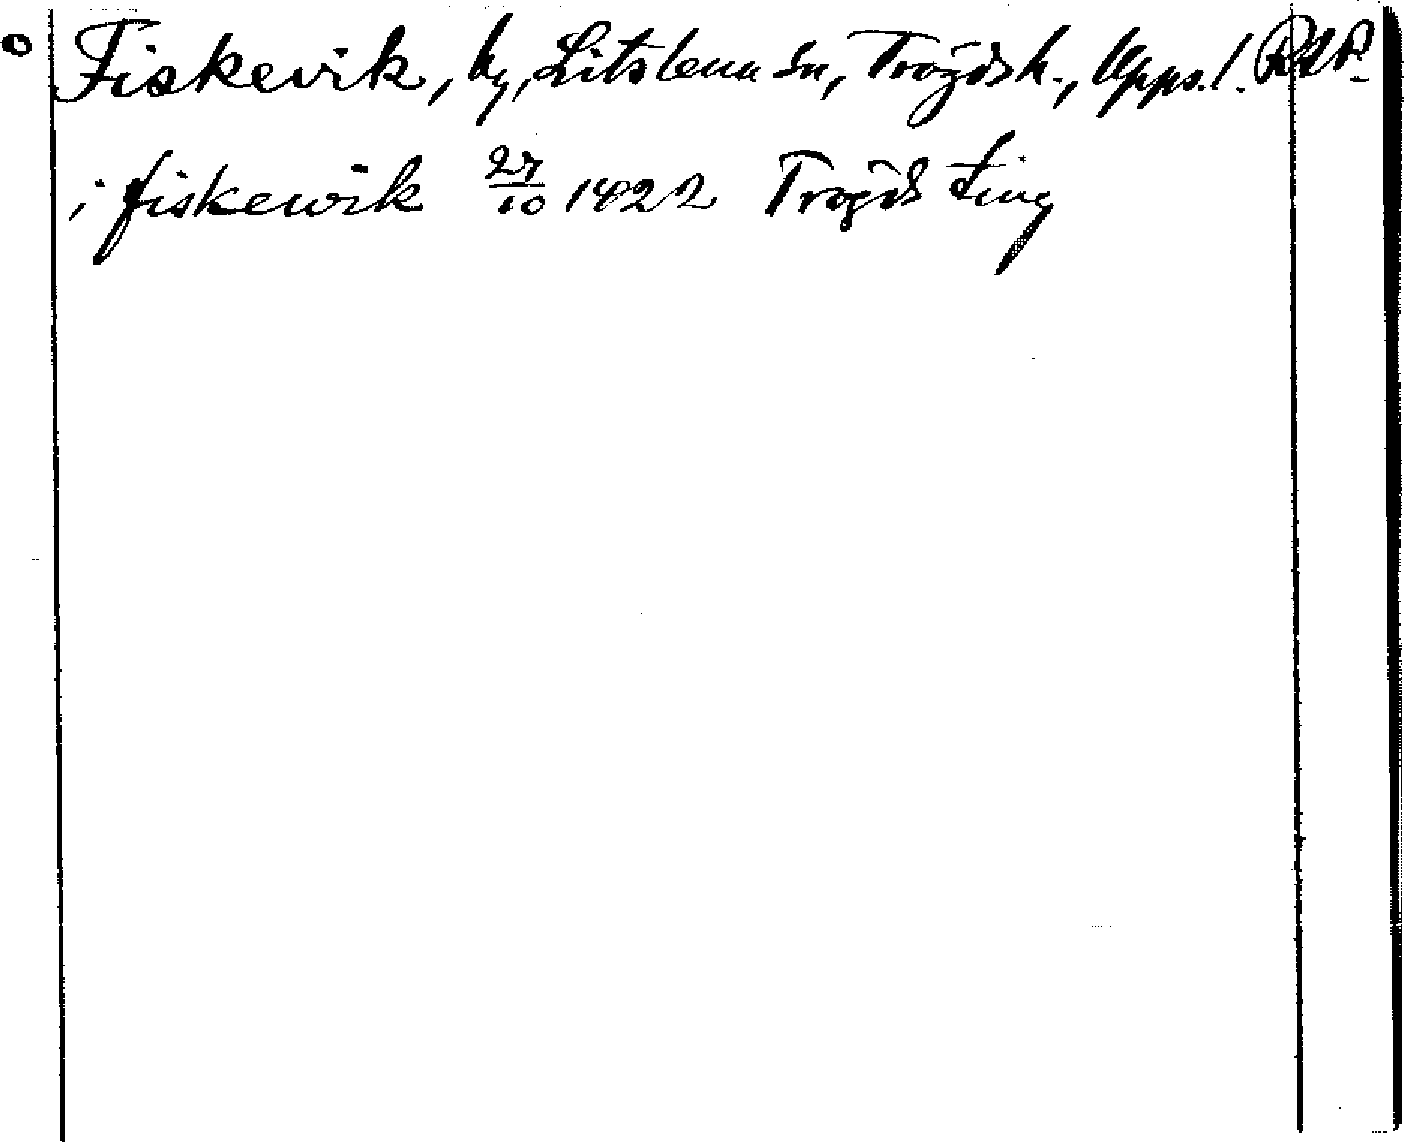 Fiskevik, by, Litslena sn, Trögds h., Upps. l. RAP.
i fiskewik 27/10 1422 Trögds ting